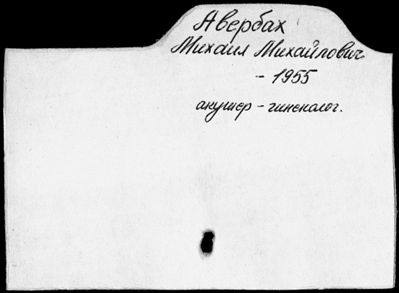 Авербах
Михаил Михайлович
- 1955
акушер - гинеколог.